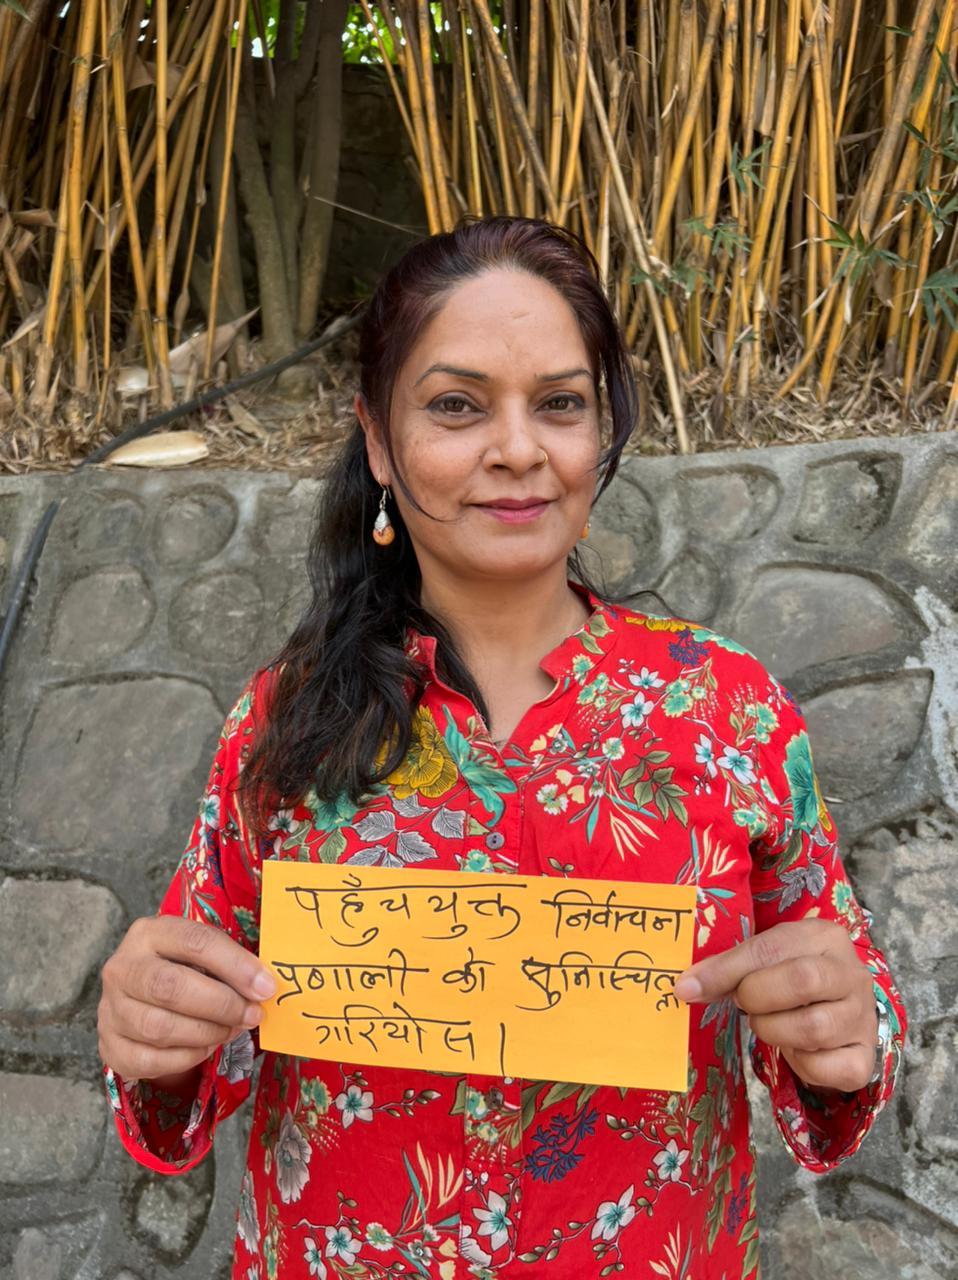 पहुँच युक्त निर्वाचन
प्रणाली को सुनिश्चित्ता
गरियोस।